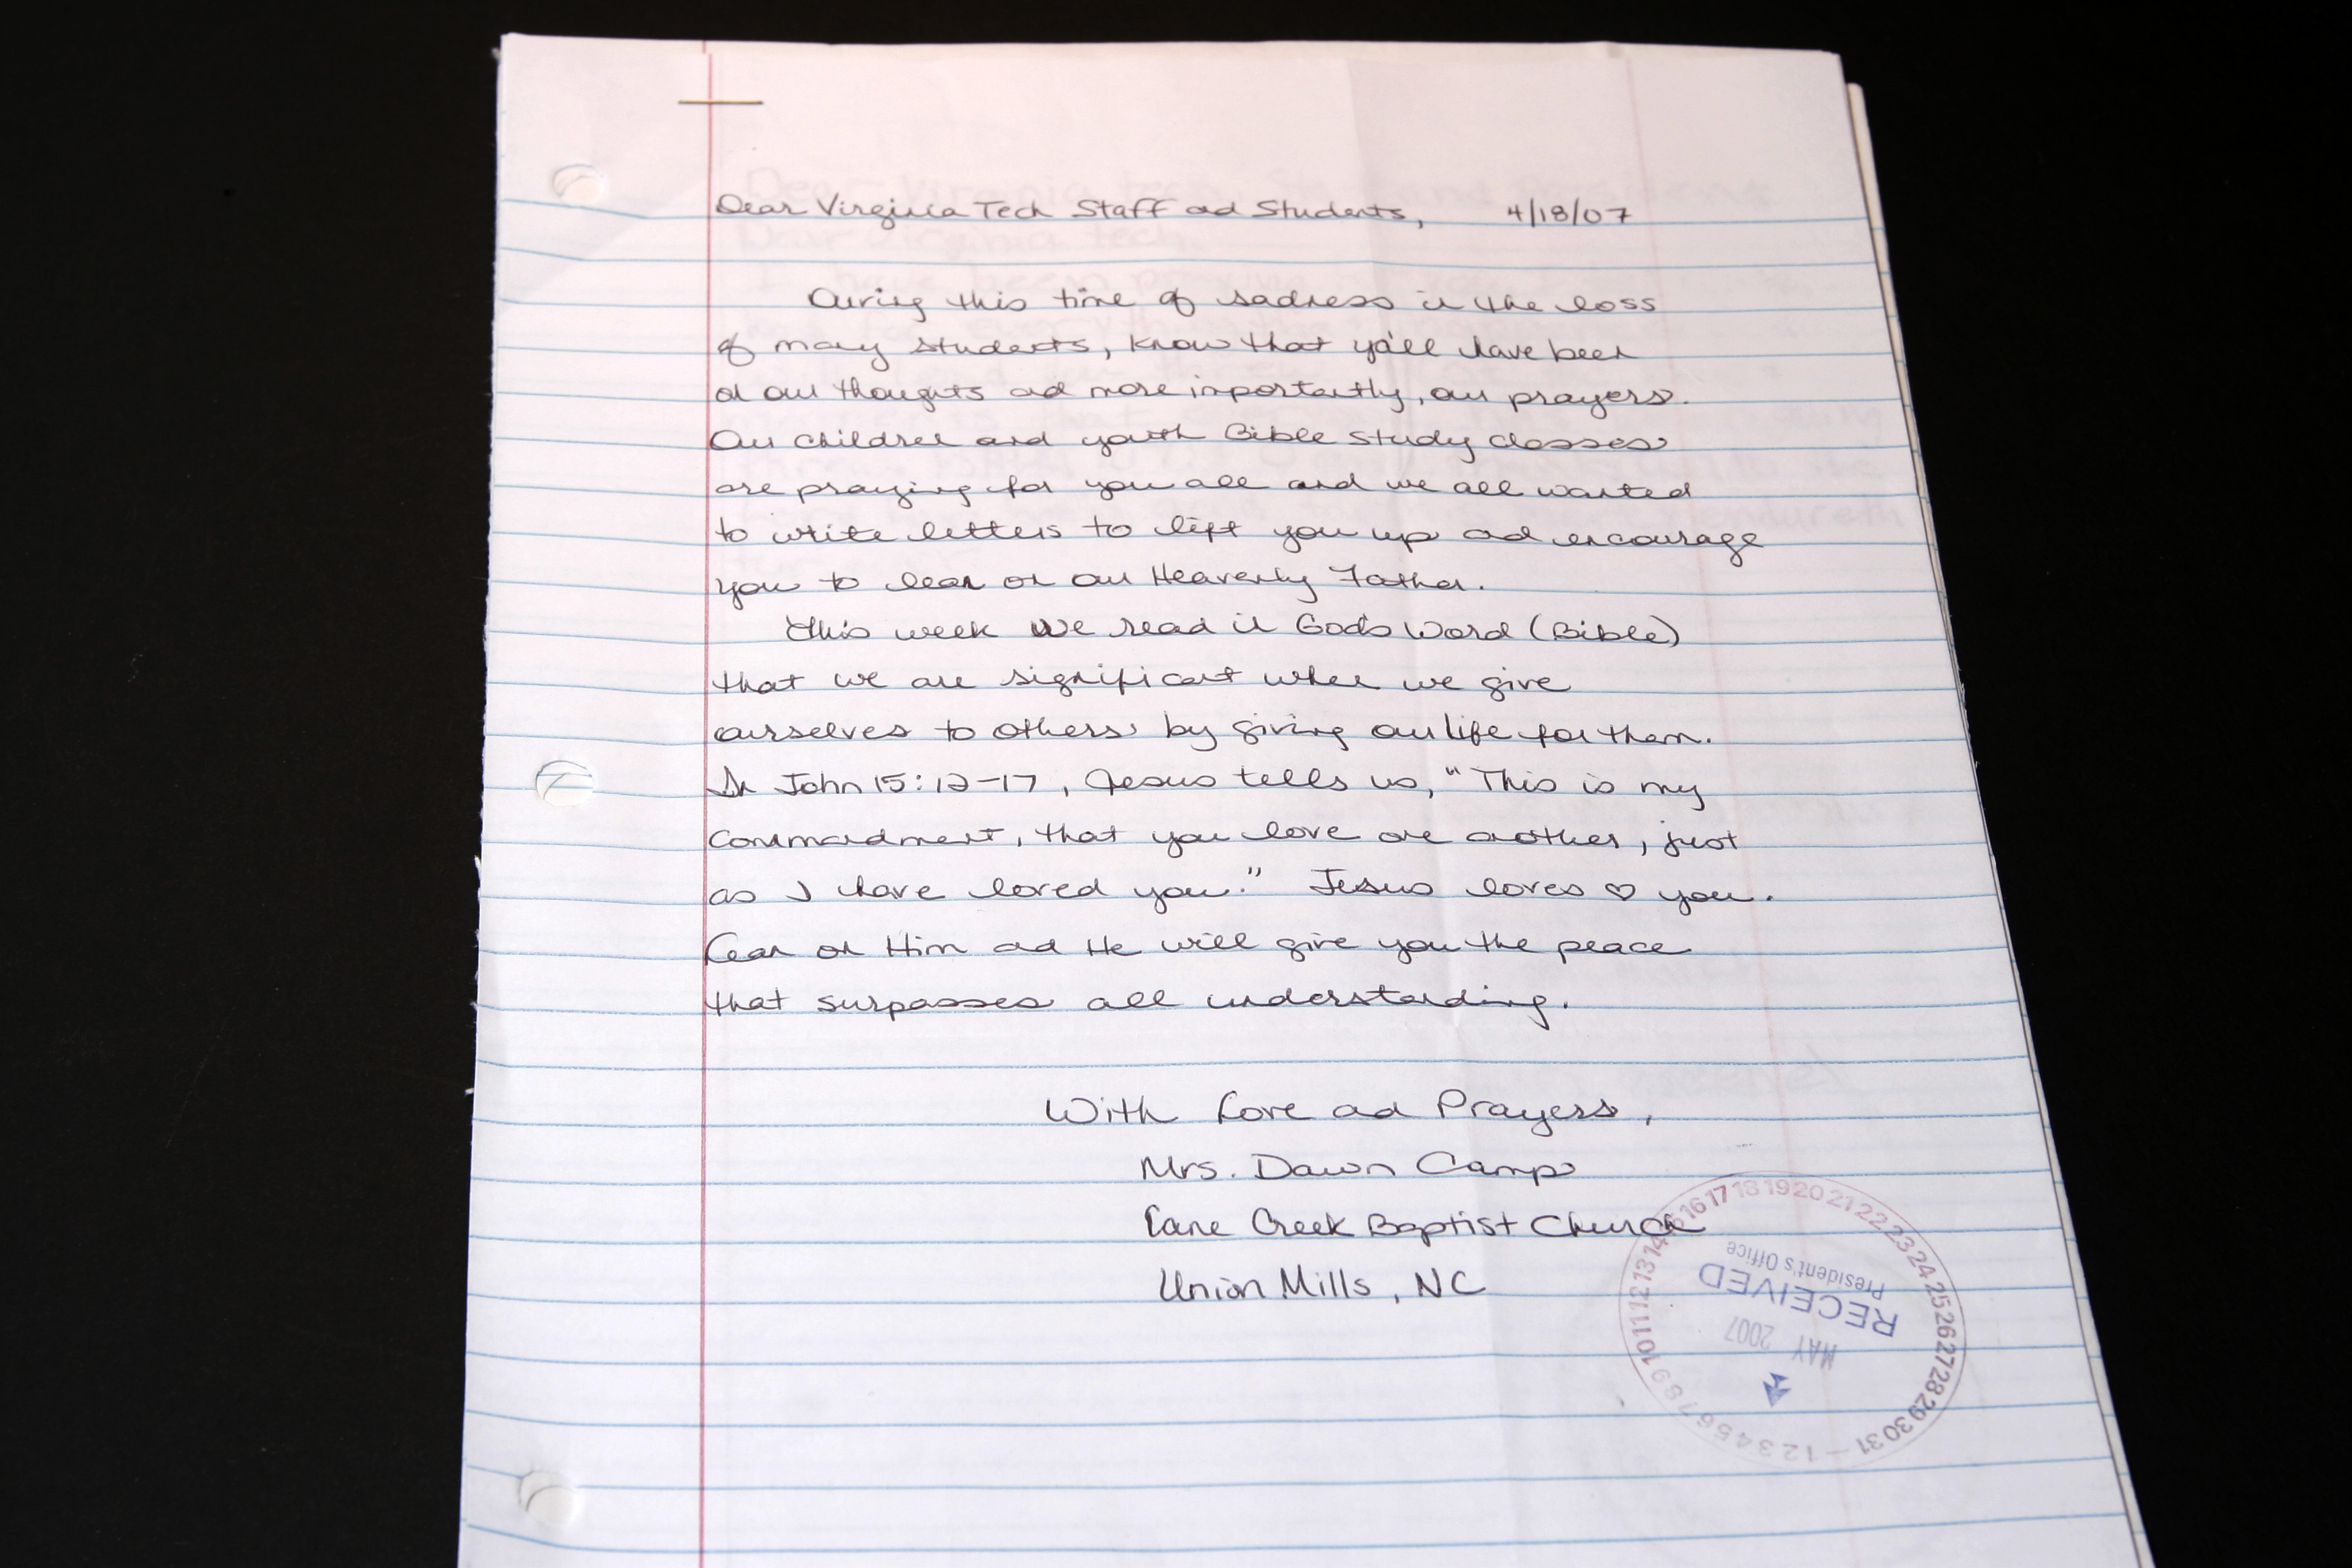 Dear Virginia Tech Staff and Students, 4/18/07
During this time of sadness in the loss
of many students, know that ya'll have been
on our thoughts and more importantly, our prayers.
Our children and youth Bible study classes
are praying for you all and we all wanted
to write letters to lift you up and encourage
you to lean on our Heavenly Father.
This week we read in God's Word (Bible)
that we are significant when we give
ourselves to others by giving our life for them.
In John 15:12-17, Jesus tells us, "This is my
commandment, that you love one another, just
as I have loved you." Jesus loves ♡ you.
Lean on Him and He will give you the peace
that surpasses all understanding.
With Love and Prayers,
Mrs. Dawn Camp
Cane Creek Baptist Church
Union Mills, NC
1 2 3 4 5 6 7 8 9 10 11 12 13 14 15 16 17 18 19 20 21 22 23 24 25 26 27 28 29 30 31
MAY 2007
RECEIVED
President's Office